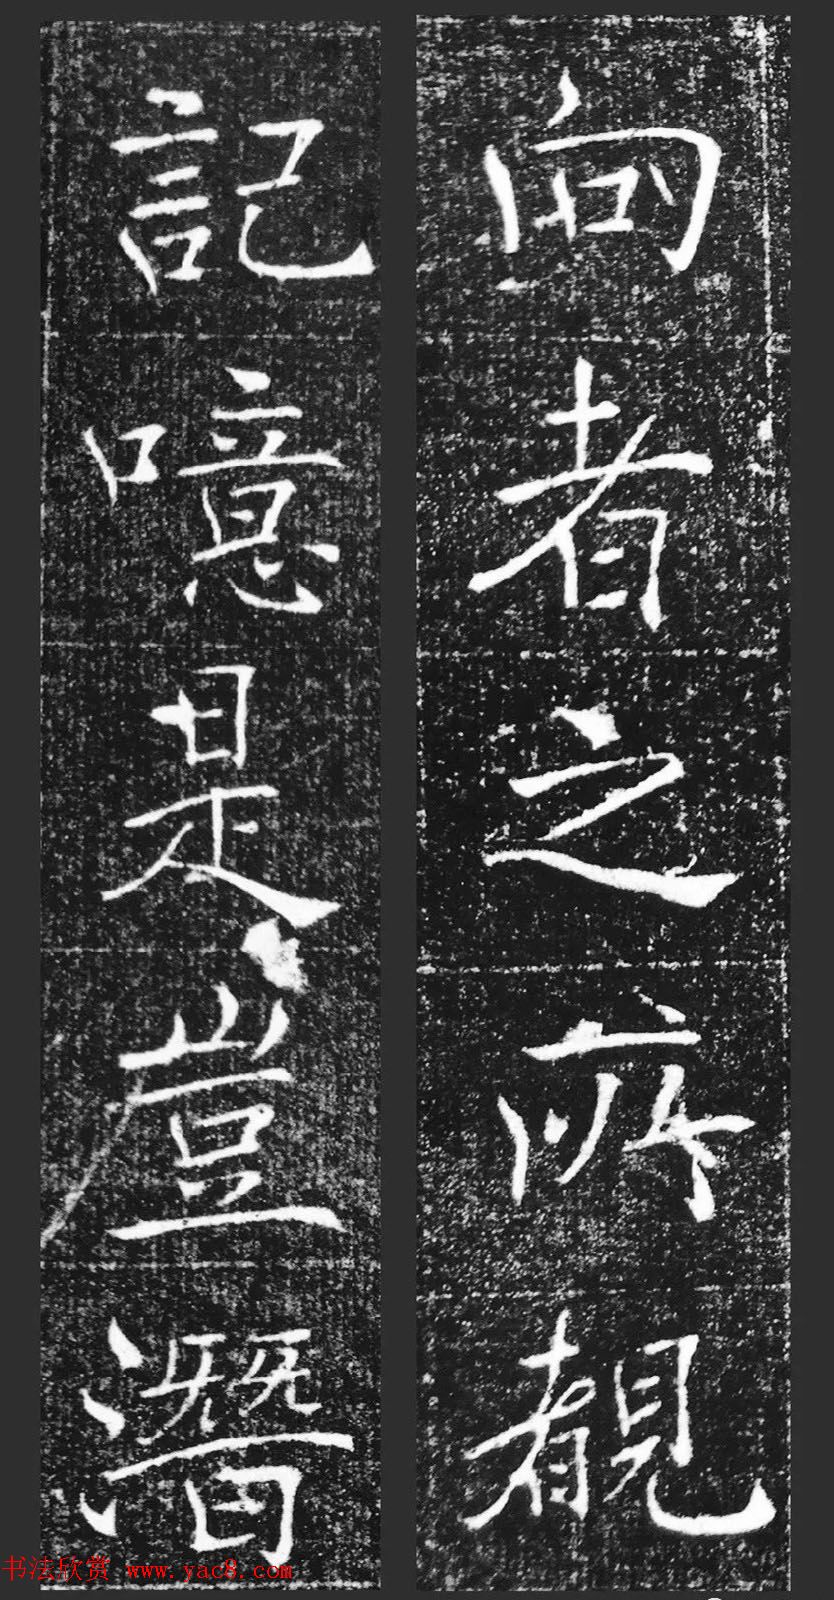 向者之所覩
記噫是豈潛
书法欣赏 www.yac8.com